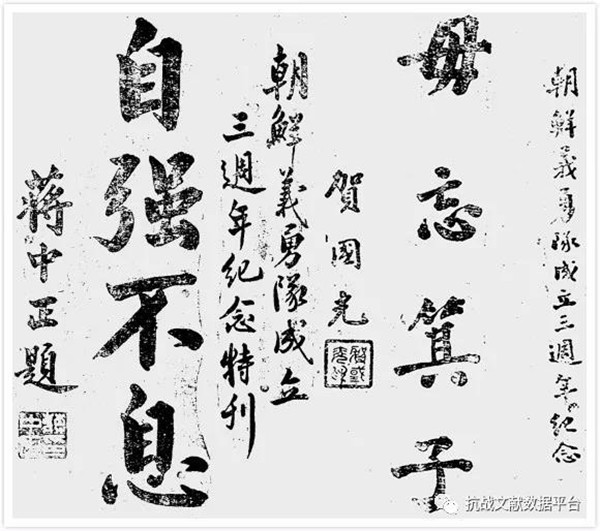 朝鮮義勇隊成立三週年紀念
毋忘箕子
賀國光
朝鮮義勇隊成立
三週年紀念特刊
自强不息
蔣中正題
抗战文献数据平台